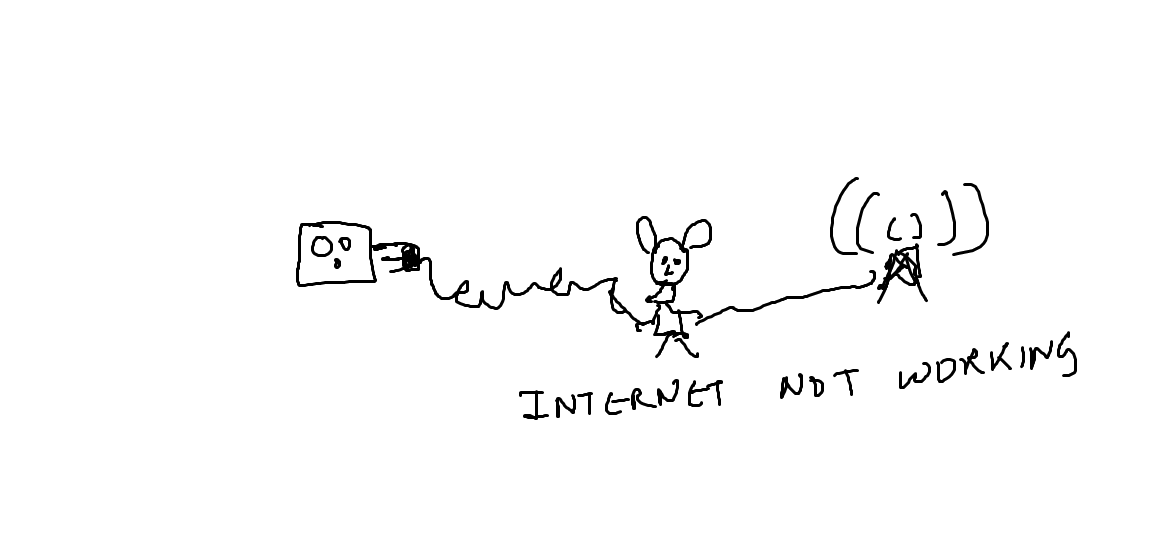 INTERNET NOT WORKING